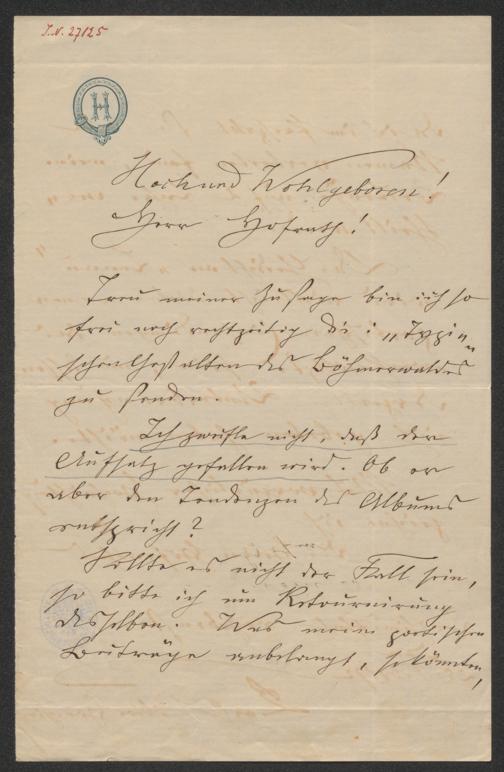 I.N. 27125
H
Hoch und Wohlgeboren!
Herr Hofrath!
Treu meiner Zusage bin ich so
frei noch rechtzeitig die: „Typi„
schen Gestalten des Böhmerwaldes"
zu senden.
Ich zweifle nicht, daß der
Aufsatz gefallen wird. Ob er
aber den Tendenzen des Albums
entspricht?
Sollte es nicht der Fall sein,
so bitte ich um Retournirung
desselben. Was meine poetischen
Beiträge anbelangt, so könnten,